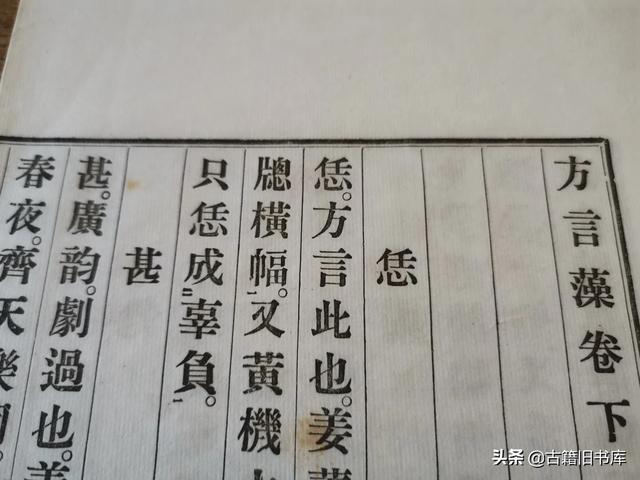 方言藻卷下
恁
恁。方言此也。姜
牕橫幅。又黃機
只恁成辜負。
甚
甚。廣韵劇過也。
春夜。齊天樂
头条 @古籍旧书库